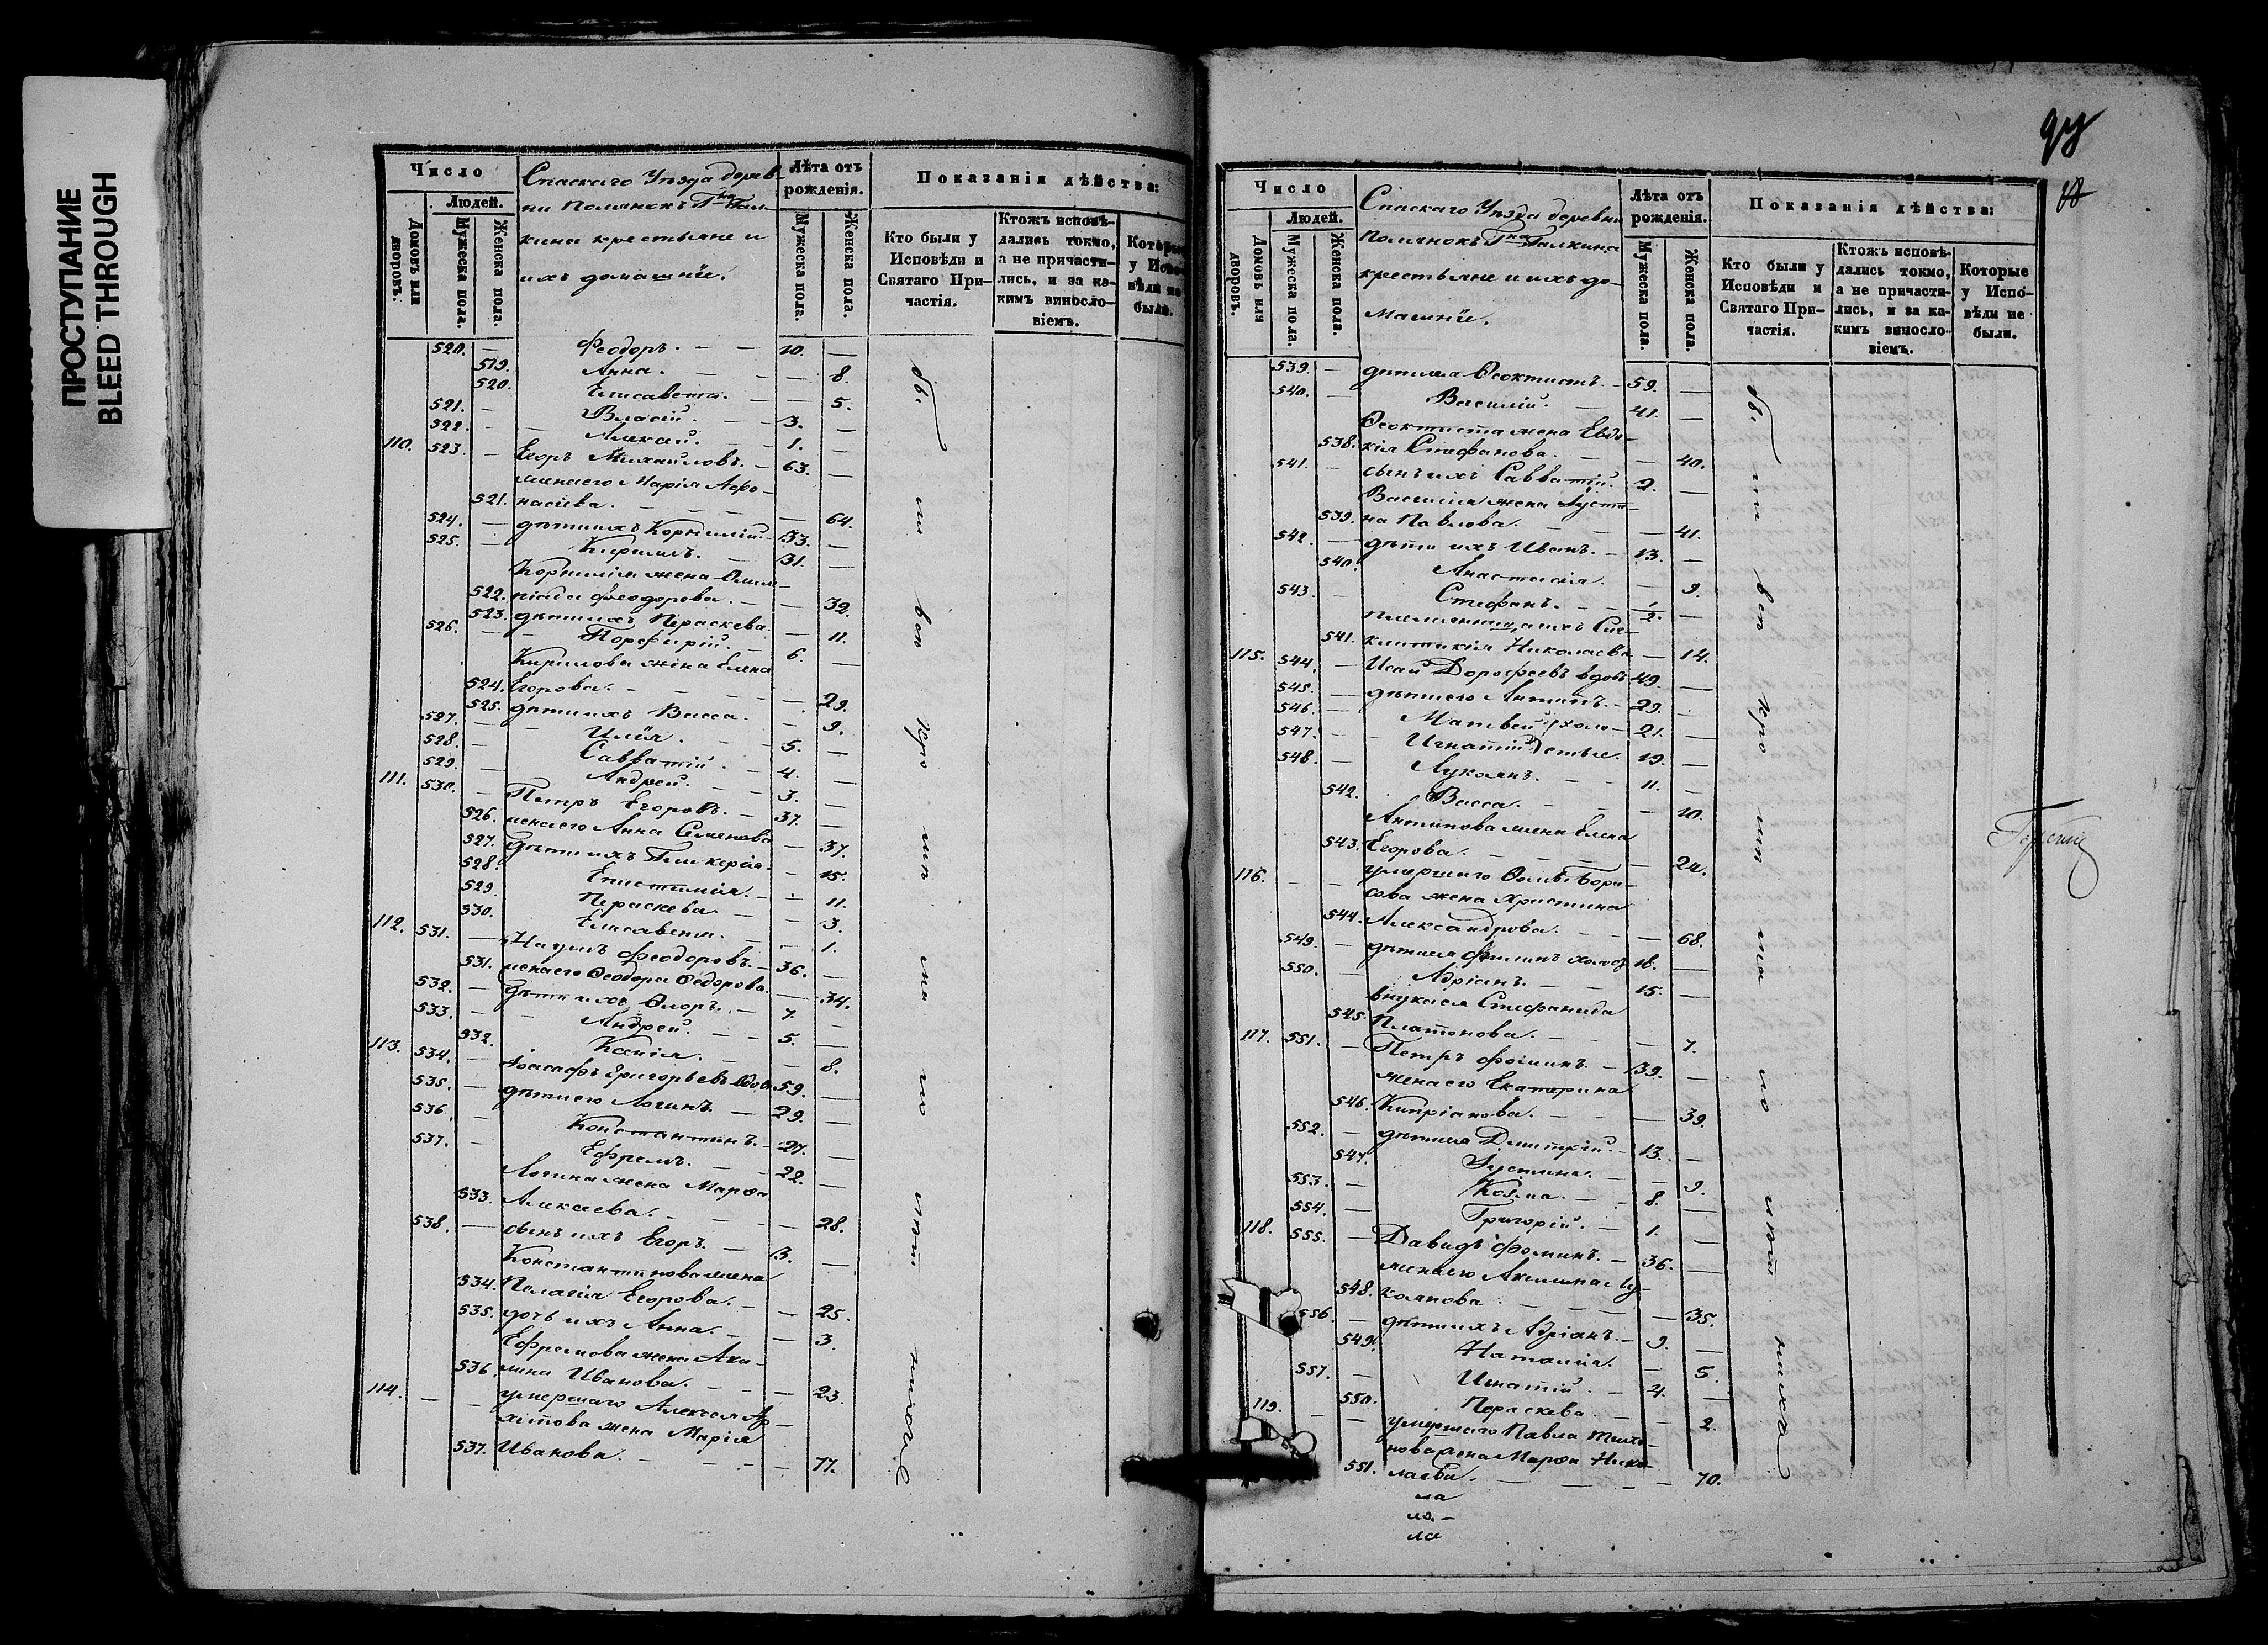 ПРОСТУПАНИЕ
BLEED THROUGH
Число
Людей.
Домовъ или дворовъ.
Мужеска пола.
Женска пола.
Спаскаго Уѣзда дерев-
ни Полянокъ Гна Гал-
кина крестьяне и
ихъ домашніе.
Лѣта отъ рожденія.
Мужеска пола.
Женска пола.
Показанія дѣйства:
Кто были у Исповѣди и Святаго Причастія.
Ктожъ исповѣдались токмо, а не причастились, и за какимъ винословіемъ.
Которые у Исповѣди не были.
520. — Феодоръ. — — 10. —
519. Анна. — — 8.
520. Елисавета. — — 5.
521. — Власій. — — 3. —
522. — Алексѣй. — — 1. —
110. 523. — Егоръ Михайловъ. — 63. —
жена его Марія Афо-
521. насіева. — — — 64.
524. — дѣти ихъ Корнилій 33. —
525. — Кирилъ. — 31. —
Корнилія жена Олим-
522. піада Феодорова. — — 32.
523. дѣти ихъ Параскева. — 11.
526. — Порфирій. — 6. —
Кирилова жена Елена
524. Егорова. — — — 29.
525. дѣти ихъ Васса. — 9.
527. — Илія. — — 5. —
528. — Савватій. — 4. —
529. — Андрей. — 3. —
111. 530. — Петръ Егоровъ. — 37. —
526. жена его Анна Семенова — 37.
527. дѣти ихъ Гликерія. — 15.
528. Епистимія. — — 11.
529. Параскева — — 3.
530. Елисавета. — — 1.
112. 531. — Наумъ Феодоровъ. — 36. —
531. жена его Феодора Федорова. — 34.
532. — дѣти ихъ Флоръ. — 7. —
533. — Андрей. — — 5. —
532. Ксенія. — — 8.
113. 534. — Іоасафъ Григорьевъ вдов. 59. —
535. — дѣти его Логинъ — 29. —
536. — Константинъ. — 27. —
537. — Ефремъ. — — 22. —
Логина жена Марфа
533. Алексѣева. — — — 28.
538. — сынъ ихъ Егоръ. — 3. —
Константинова жена
534. Пелагія Егорова. — — 25.
535. дочь ихъ Анна. — — 3.
Ефремова жена Аку-
536. лина Иванова. — — — 23.
114. — — умершаго Алексѣя Ар-
хипова жена Марія
537. Иванова. — — — 77.
98
Число
Людей.
Домовъ или дворовъ.
Мужеска пола.
Женска пола.
Спаскаго Уѣзда деревни
Полянокъ Гна Галкина
крестьяне и ихъ до-
машніе.
Лѣта отъ рожденія.
Мужеска пола.
Женска пола.
Показанія дѣйства:
Кто были у Исповѣди и Святаго Причастія.
Ктожъ исповѣдались токмо, а не причастились, и за какимъ винословіемъ.
Которые у Исповѣди не были.
539. — дѣти ея Феоктистъ. — 59. —
540. — Василій. — 41. —
Феоктиста жена Евдо-
538. кія Стефанова. — — 40.
541. — сынъ ихъ Савватій. 2. —
Василія жена Іусти-
539. на Павлова. — — 41.
542. — дѣти ихъ Иванъ. — 13. —
540. Анастасія — — 9.
543. — Стефанъ. — — 1/2. —
племянница ихъ Син-
541. клитикія Николаева — 14.
115. 544. — Исай Дорофеевъ вдовъ 49. —
545. — дѣти его Антипъ. — 29. —
546. — Матвей холо- 21. —
547. — Игнатій стые. 19. —
548. — Лукіянъ. — — 11. —
542. Васса. — — — 10.
Антипова жена Елена
543. Егорова. — — — 24.
116. — — умершаго Фомы Бори-
сова жена Христина
544. Александрова. — — 68.
549. — дѣти ея Филипъ холос. 18. —
550. — Адріанъ. — — 15. —
внука ея Стефанида
545. Платонова. — — 7.
117. 551. — Петръ Фоминъ. — 39. —
жена его Екатерина
546. Кипріанова. — — 39.
552. — дѣти ихъ Димитрій. — 13. —
547. Устинья. — — 9.
553. — Козма. — — 8. —
554. — Григорій. — 1. —
118. 555. — Давидъ Фоминъ. — 36. —
жена его Акилина Лу-
548. кіанова — — — 35.
556. — дѣти ихъ Адріанъ. — 9. —
549. Наталія. — — 5.
557. — Игнатій. — 4. —
550. Параскева. — — 2.
119. — — умершаго Павла Тихо-
нова жена Марфа Нико-
551. лаева. — — — 70.
ла
ло. —
ла